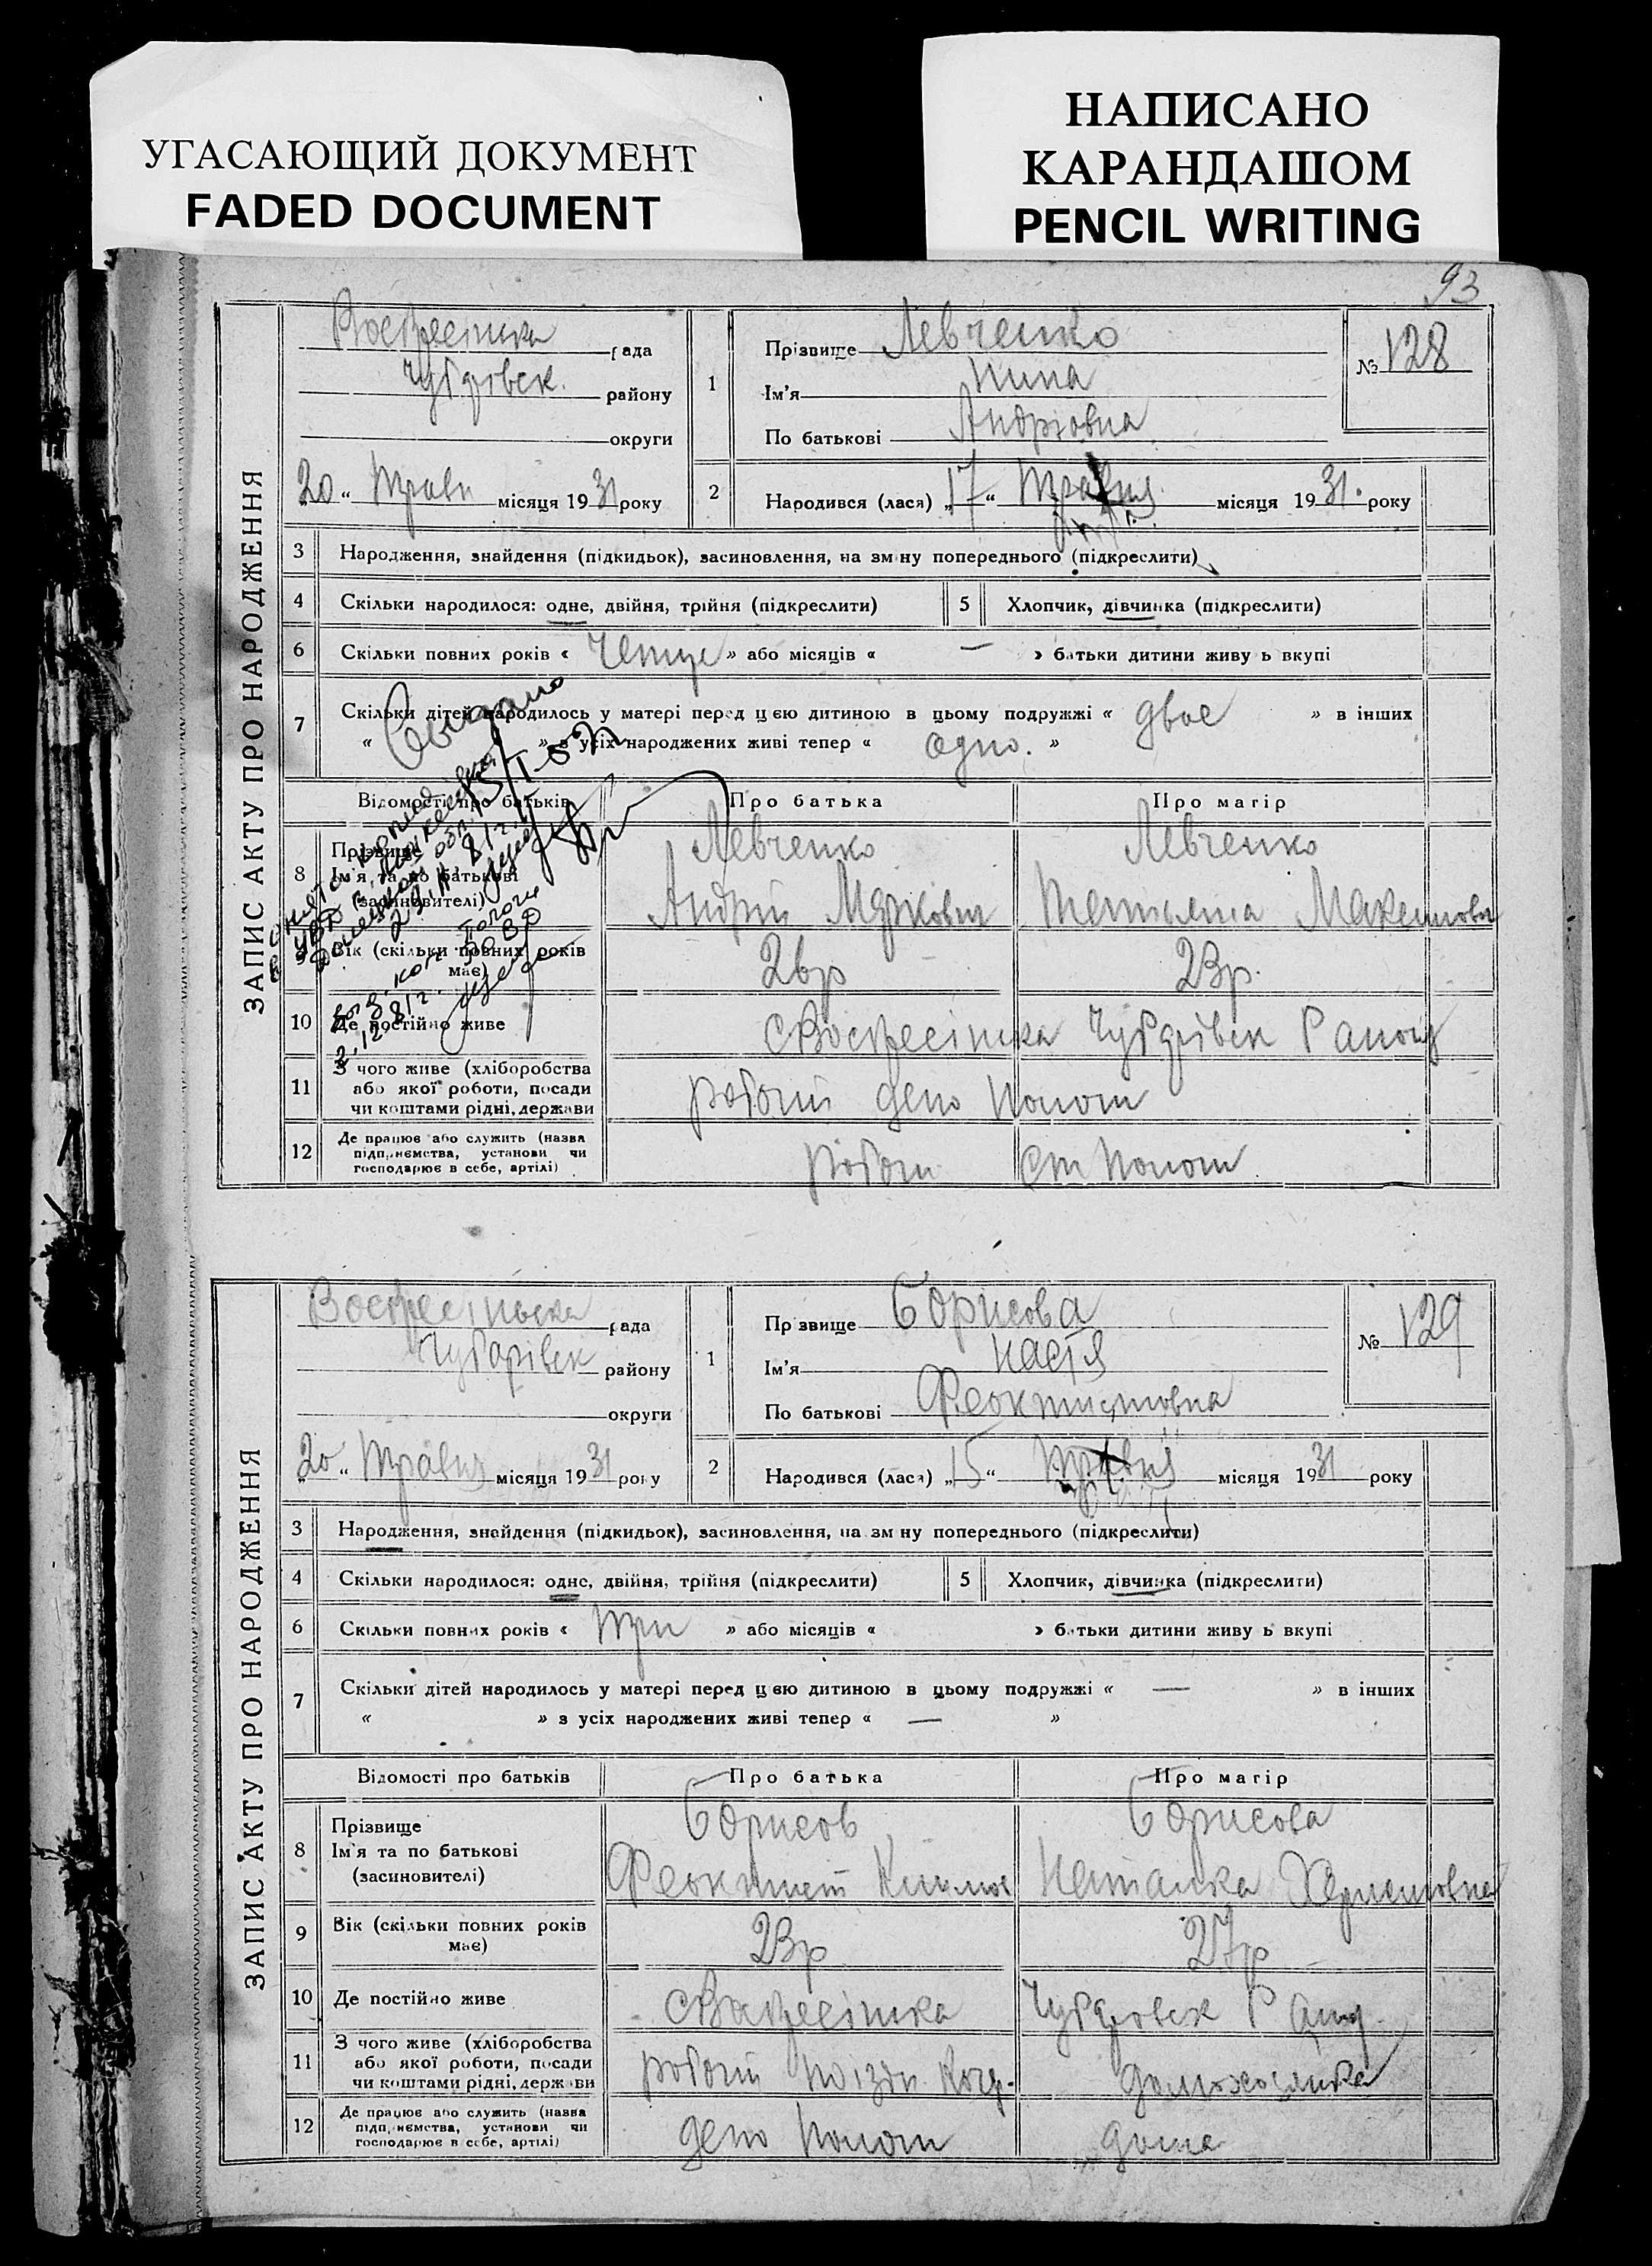 УГАСАЮЩИЙ ДОКУМЕНТ
FADED DOCUMENT
НАПИСАНО
КАРАНДАШОМ
PENCIL WRITING
93
ЗАПИС АКТУ ПРО НАРОДЖЕННЯ
Воскресінка рада
Чубарівськ. району
округи
20 " Травн місяця 1931 року
1
Прізвище Левченко
Ім'я Нина
По батькові Андріовна
№ 128
2 Народився (лася) „17" Травня місяця 1931. року
3 Народження, знайдення (підкидьок), засиновлення, на зміну попереднього (підкреслити)
4 Скільки народилося: одне, двійня, трійня (підкреслити) 5 Хлопчик, дівчинка (підкреслити)
6 Скільки повних років « » або місяців « — » батьки дитини живуть вкупі
7 Скільки дітей народилось у матері перед цєю дитиною в цьому подружжі « двое » в інших
« » з усіх народжених живі тепер « одно. »
Відомості про батьків Про батька Про матір
8 Прізвище
Ім'я та по батькові
(засиновителі)
Левченко
Андрій Маркович
Левченко
Тетьяна Максимовна
9 Вік (скільки повних років
має)
23р.
10 Де постійно живе
с Воскресінка Чубарівськ Району
11 З чого живе (хліборобства
або якої роботи, посади
чи коштами рідні, держави
робочий депо Пологи
12 Де працює або служить (назва
підприємства, установи чи
господарює в себе, артілі)
ст Пологи
ЗАПИС АКТУ ПРО НАРОДЖЕННЯ
Воскресіньска рада
Чубарівск району
округи
20 " Травня місяця 1931 року
1
Прізвище Борисова
Ім'я Настя
По батькові Феоктистовна
№ 129
2 Народився (лася) „15" Травня місяця 1931 року
3 Народження, знайдення (підкидьок), засиновлення, на зміну попереднього (підкреслити)
4 Скільки народилося: одне, двійня, трійня (підкреслити) 5 Хлопчик, дівчинка (підкреслити)
6 Скільки повних років « Три » або місяців « » батьки дитини живуть вкупі
7 Скільки дітей народилось у матері перед цєю дитиною в цьому подружжі « — » в інших
« » з усіх народжених живі тепер « — »
Відомості про батьків Про батька Про матір
8 Прізвище
Ім'я та по батькові
(засиновителі)
Борисов
Феоктист
Борисова
Наталка
9 Вік (скільки повних років
має)
23р
27р
10 Де постійно живе
с Воскресінка Чубаровск Району
11 З чого живе (хліборобства
або якої роботи, посади
чи коштами рідні, держави
робочий поїздн.
домохозяйка
12 Де працює або служить (назва
підприємства, установи чи
господарює в себе, артілі)
депо Пологи
дома